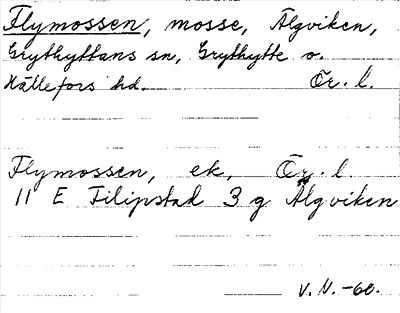 Flymossen, mosse, Älgviken,
Grythyttans sn, Grythytte o.
Hällefors hd. Ör. l.
Flymossen, ek, Ör. l.
11 E Filipstad 3 g Älgviken
V. N. -60.